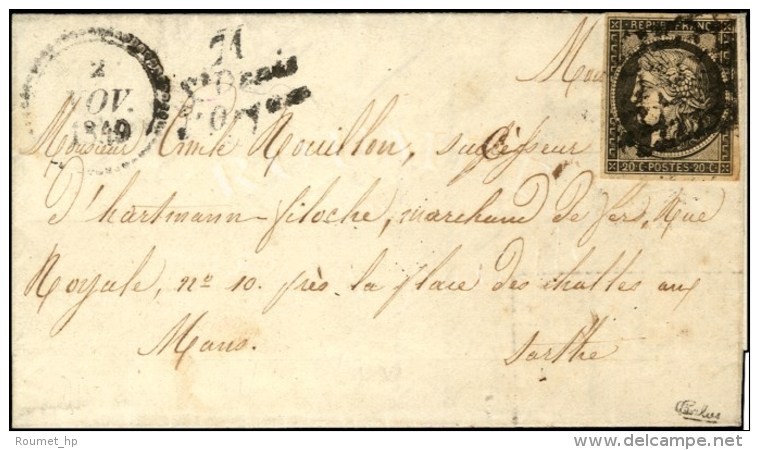 2
NOV.
1849
71
St Denis
d'Orques
REPUB. FRANC.
20 C. POSTES. 20 C.
Mon
Monsieur Emile Rouillon, successeur
d'hartmann-filoche, marchand de fer, Rue
Royale, no 10. près la place des halles aux
Mans.
Sarthe
Roumet_hp
delcampe.net